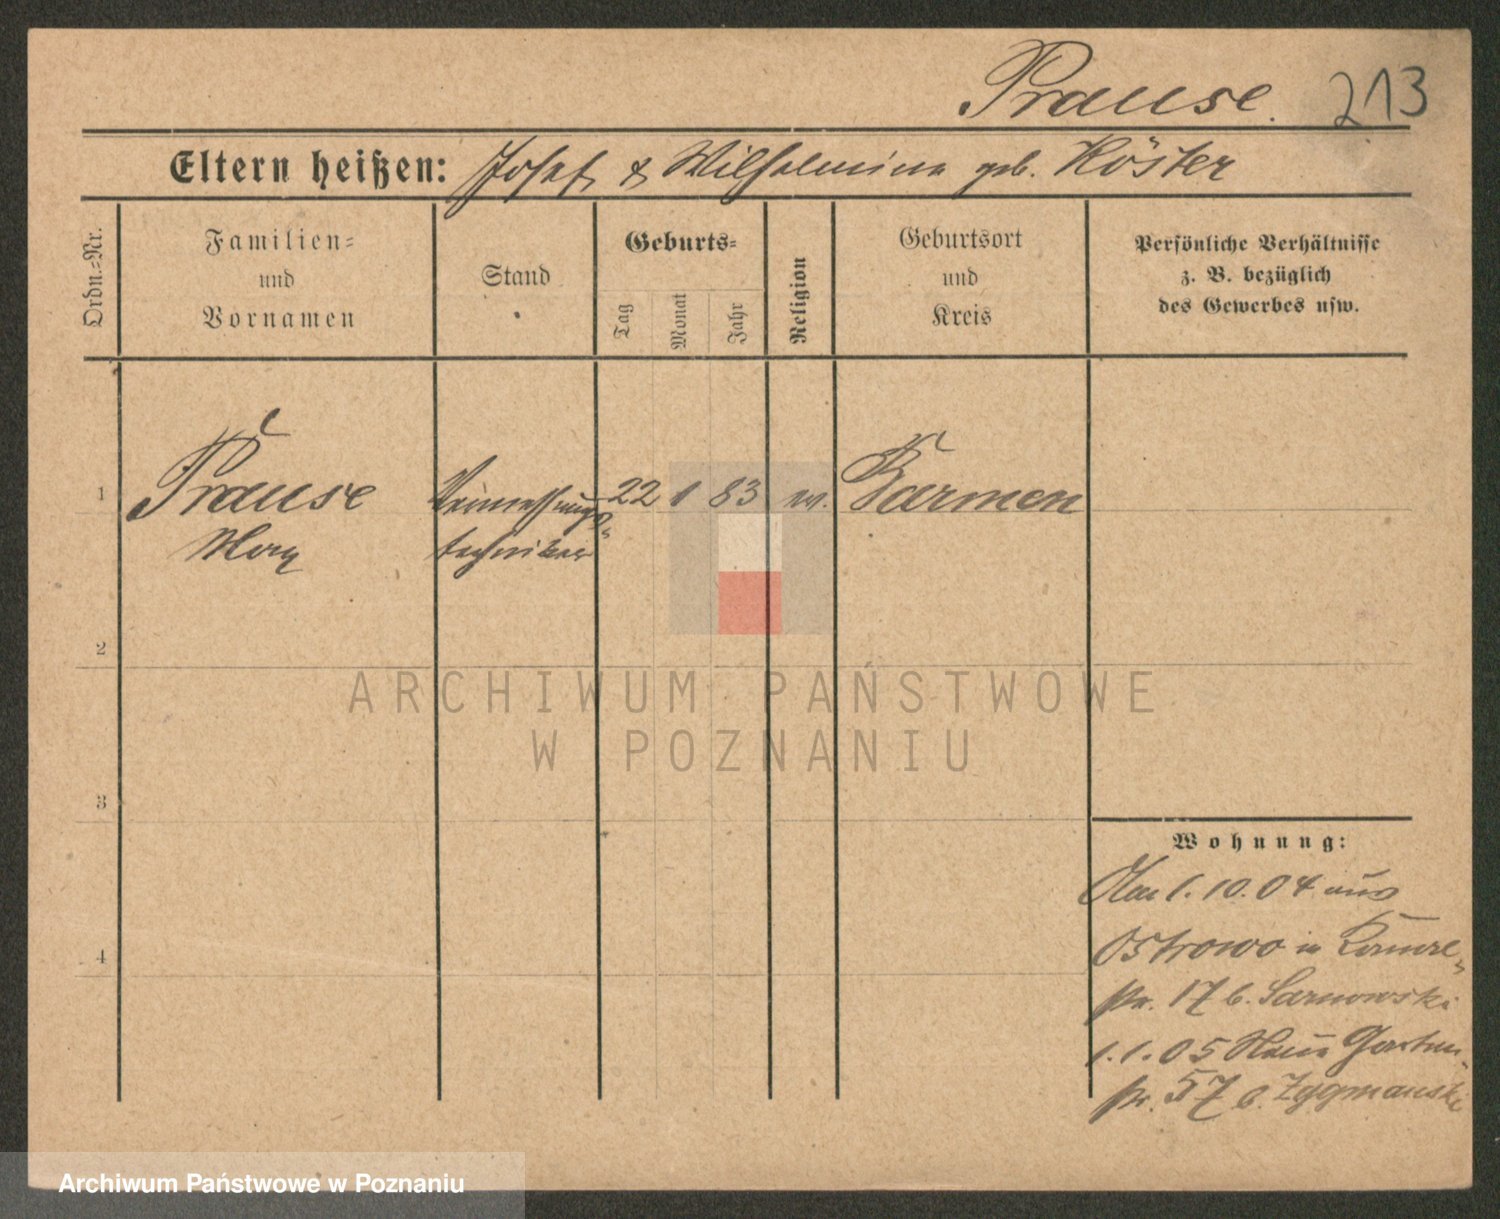 Prause. 213
Eltern heißen: Josef & Wilhelmine geb. Köster
Ordn.=Nr.
Familien=
und
Vornamen
Stand
Geburts=
Tag
Monat
Jahr
Religion
Geburtsort
und
Kreis
Persönliche Verhältnisse
z. B. bezüglich
des Gewerbes usw.
1 Prause Vermessungs= 22 1 83 ev. Barmen
Max techniker
2
3
4
Wohnung:
1.10.04 aus
Ostrowo in
17 b. Sarnowski
1.1.05 Garten
57 b. Zygmanski
ARCHIWUM PAŃSTWOWE
W POZNANIU
Archiwum Państwowe w Poznaniu